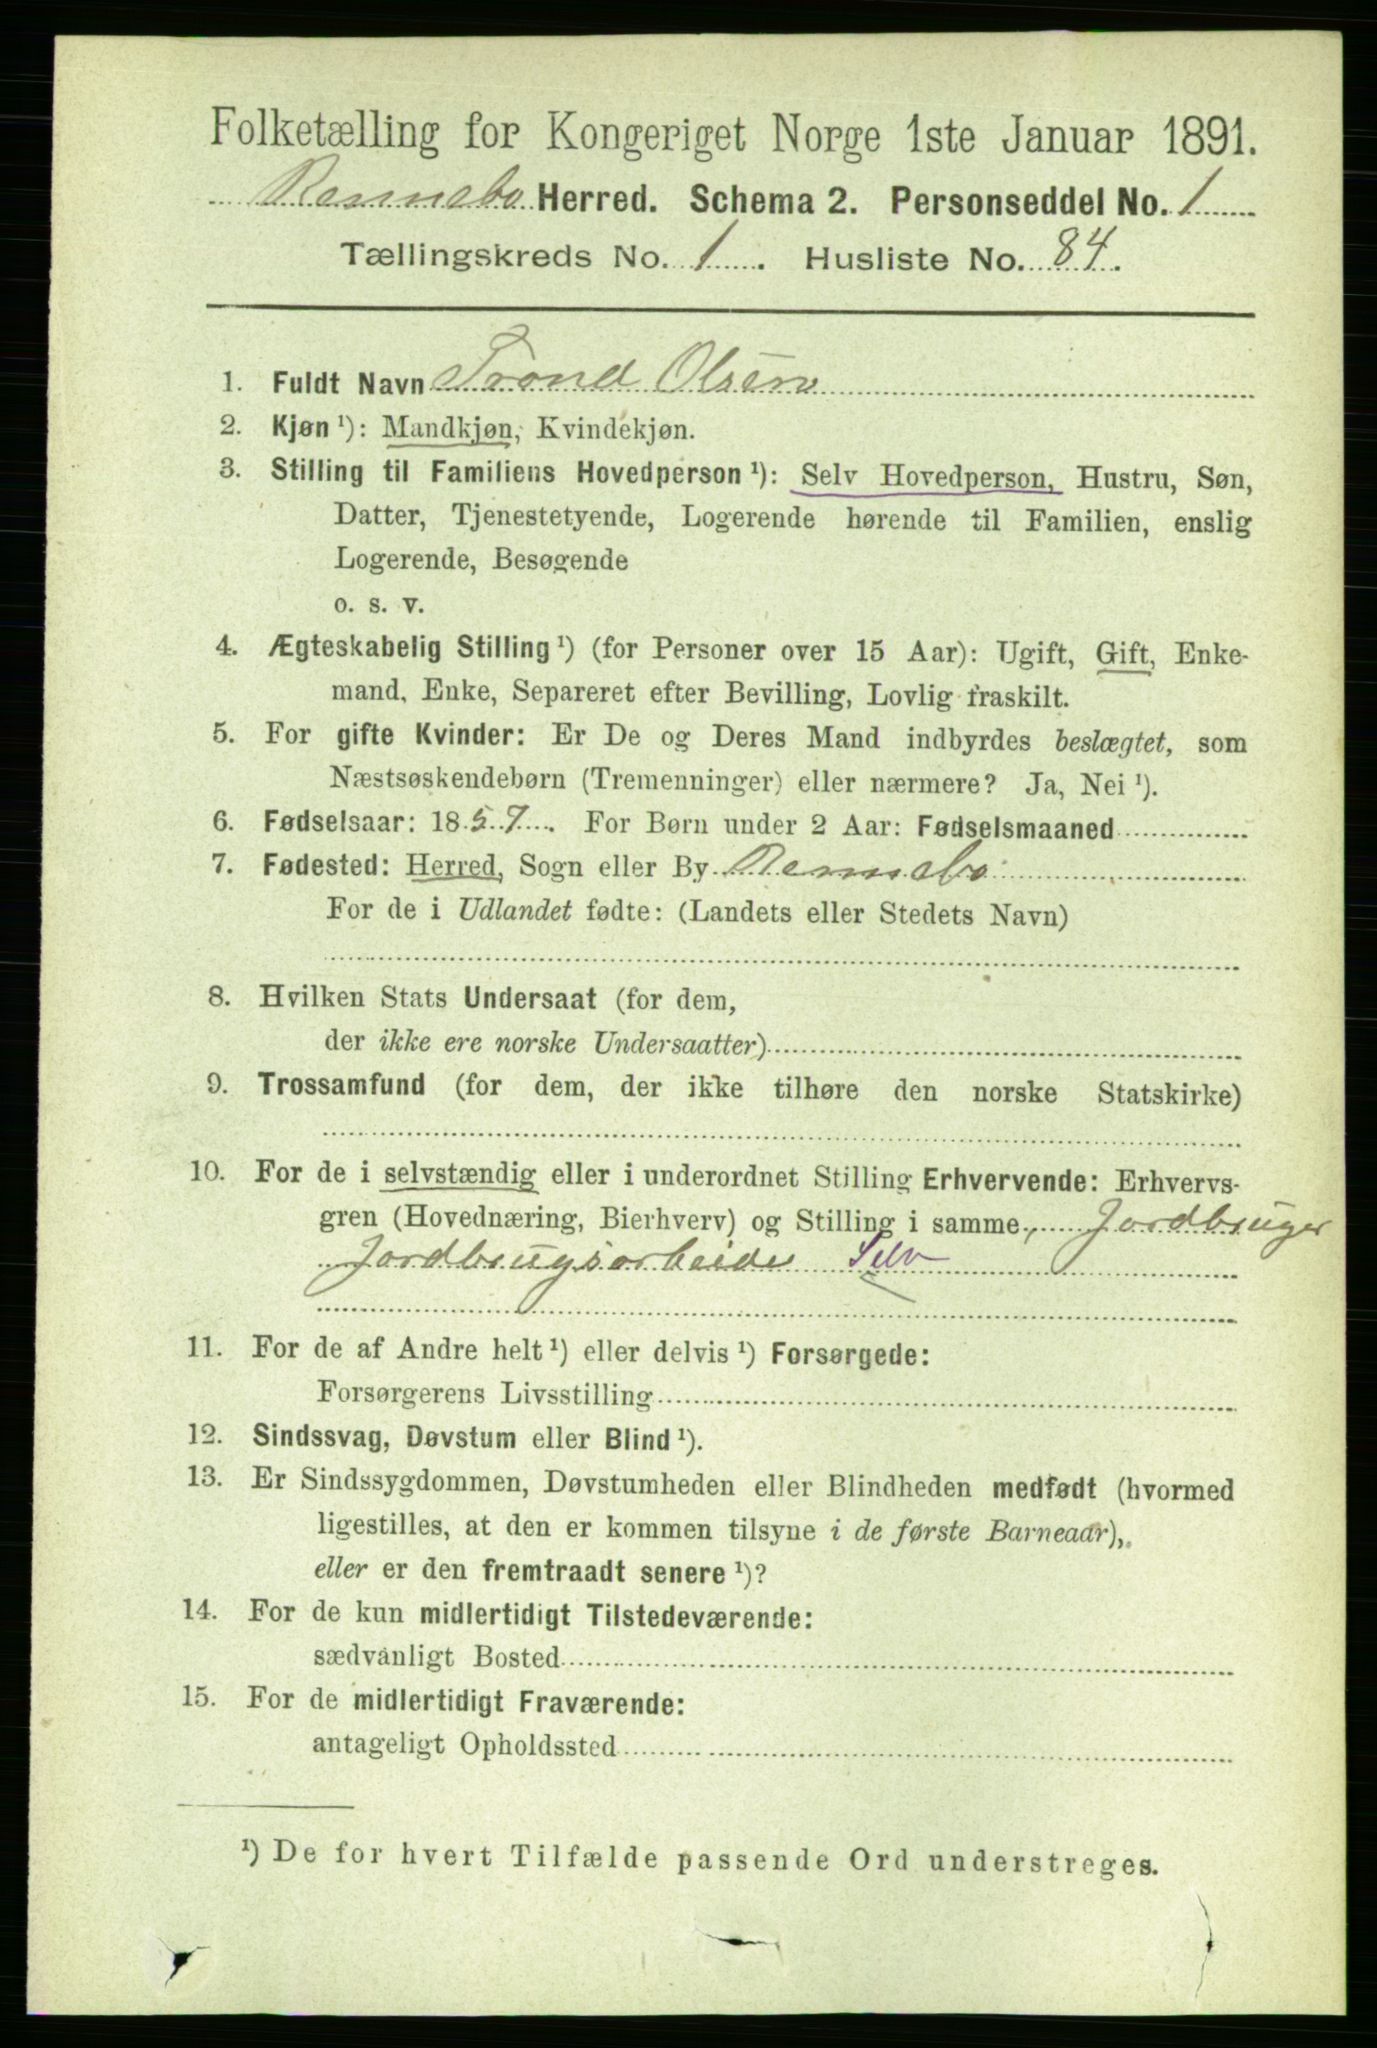 Folketælling for Kongeriget Norge 1ste Januar 1891.
Rennebo Herred. Schema 2. Personseddel No. 1
Tællingskreds No. 1. Husliste No. 84.
1. Fuldt Navn Trond Olsen
2. Kjøn ¹): Mandkjøn, Kvindekjøn.
3. Stilling til Familiens Hovedperson ¹): Selv Hovedperson, Hustru, Søn,
Datter, Tjenestetyende, Logerende hørende til Familien, enslig
Logerende, Besøgende
o. s. v.
4. Ægteskabelig Stilling ¹) (for Personer over 15 Aar): Ugift, Gift, Enke-
mand, Enke, Separeret efter Bevilling, Lovlig fraskilt.
5. For gifte Kvinder: Er De og Deres Mand indbyrdes beslægtet, som
Næstsøskendebørn (Tremenninger) eller nærmere? Ja, Nei ¹).
6. Fødselsaar: 1857. For Børn under 2 Aar: Fødselsmaaned
7. Fødested: Herred, Sogn eller By Rennebo
For de i Udlandet fødte: (Landets eller Stedets Navn)
8. Hvilken Stats Undersaat (for dem,
der ikke ere norske Undersaatter)
9. Trossamfund (for dem, der ikke tilhøre den norske Statskirke)
10. For de i selvstændig eller i underordnet Stilling Erhvervende: Erhvervs-
gren (Hovednæring, Bierhverv) og Stilling i samme, Jordbruger
Jordbrugsarbeide Selv
11. For de af Andre helt ¹) eller delvis ¹) Forsørgede:
Forsørgerens Livsstilling
12. Sindssvag, Døvstum eller Blind ¹).
13. Er Sindssygdommen, Døvstumheden eller Blindheden medfødt (hvormed
ligestilles, at den er kommen tilsyne i de første Barneaar),
eller er den fremtraadt senere ¹)?
14. For de kun midlertidigt Tilstedeværende:
sædvanligt Bosted
15. For de midlertidigt Fraværende:
antageligt Opholdssted
¹) De for hvert Tilfælde passende Ord understreges.